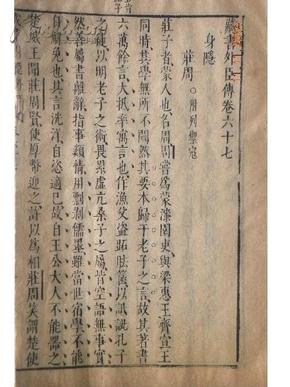 藏書外臣傳卷六十七
身隱
莊周 附列禦寇
莊子者蒙人也名周周嘗爲蒙漆園吏與梁惠王齊宣王
同時其學無所不闚然其要本歸于老子之言故其著書
六萬餘言大抵率寓言也作漁父盜跖胠篋以詆訿孔子
之徒以明老子之術畏累虛亢桑子之屬皆空語無事實
然善屬書離辭指事類情用剽剝儒墨雖當世宿學不能
自解免也其言洸洋自恣適巳故自王公大人不能器之
楚威王聞莊周賢使厚幣迎之許以爲相莊周笑謂楚使